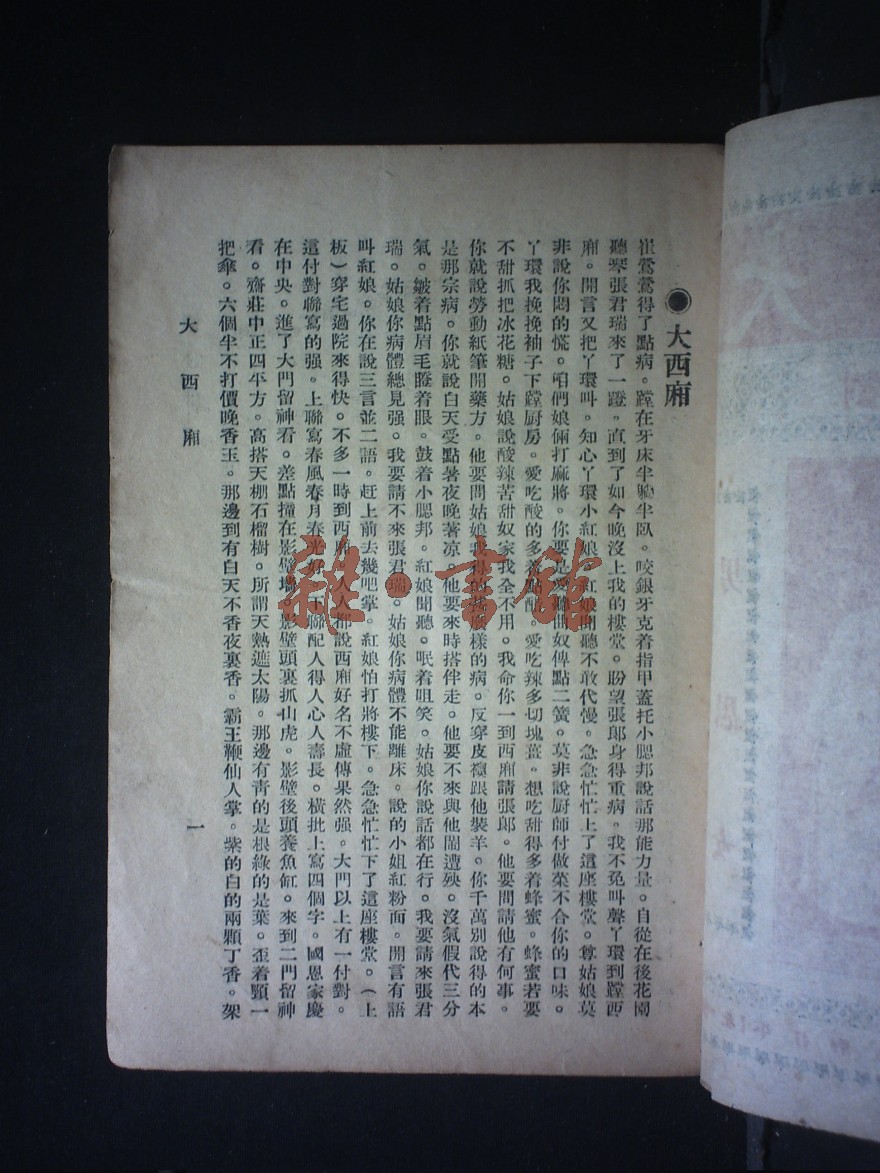 ●大西廂
崔鶯鶯得了點病。蹚在牙床半𭭕半臥。咬銀牙克着指甲蓋托小腮邦說話那能力量。自從在後花園
聽琴張君瑞來了一蹬。直到了如今晚沒上我的樓堂。盼望張郎身得重病。我不免叫聲丫環到蹚西
廂。開言又把丫環叫。知心丫環小紅娘。紅娘聞聽不敢代慢。急急忙忙上了這座樓堂。尊姑娘莫
非說你悶的慌。咱們娘倆打麻將。你要是愛聽曲奴俾點二簧。莫非說厨師付做菜不合你的口味。
丫環我挽挽袖子下蹚厨房。愛吃酸的多着點醋。愛吃辣多切塊薑。想吃甜得多着蜂蜜。蜂蜜若要
不甜抓把冰花糖。姑娘說酸辣苦甜奴家我全不用。我命你一到西廂請張郎。他要問請他有何事。
你就說勞動紙筆開藥方。他要問姑娘我得的甚麽樣的病。反穿皮襖跟他裝羊。你千萬別說得的本
是那宗病。你就說白天受點暑夜晚著凉。他要來時搭伴走。他要不來與他鬧遭殃。沒氣假代三分
氣。皺着點眉毛瞪着眼。鼓着小腮邦。紅娘聞聽。呡着咀笑。姑娘你說話都在行。我要請來張君
瑞。姑娘你病體總見强。我要請不來張君瑞。姑娘你病體不能離床。說的小姐紅粉面。開言有語
叫紅娘。你在說三言並二語。赶上前去幾吧掌。紅娘怕打將樓下。急急忙忙下了這座樓堂。（上
板）穿宅過院來得快。不多一時到西廂。人人都說西廂好名不虛傳果然强。大門以上有一付對。
這付對聯寫的强。上聯寫春風春月春光好。下聯配人得人心人壽長。橫批上寫四個字。國恩家慶
在中央。進了大門留神看。差點撞在影壁墻。影壁頭裏抓山虎。影壁後頭養魚缸。來到二門留神
看。齋莊中正四平方。高搭天棚石榴樹。所謂天熱遮太陽。那邊有靑的是根綠的是葉。歪着顆一
把傘。六個半不打價晚香玉。那邊到有白天不香夜裏香。霸王鞭仙人掌。紫的白的兩顆丁香。架
大西廂
一
雜·書館